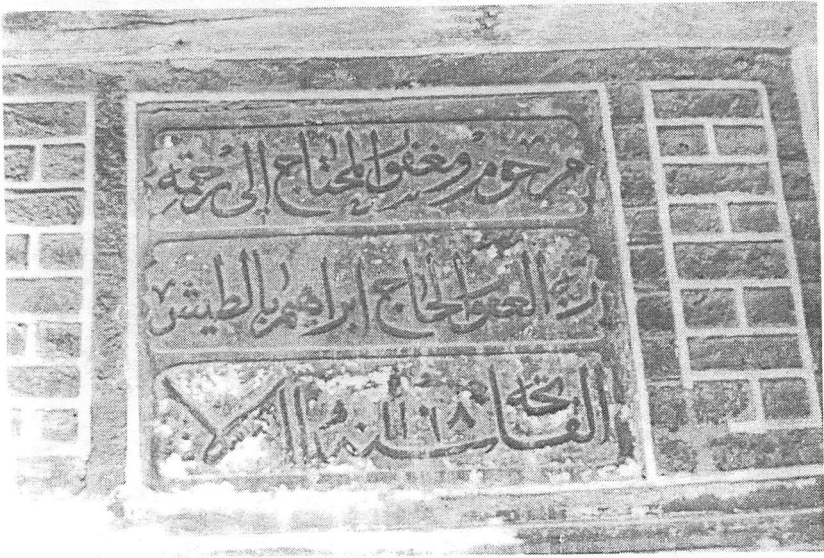 مرحوم ومغفور المحتاج إلى رحمة
ربه الغفور الحاج ابراهيم
الفاتحه سنه